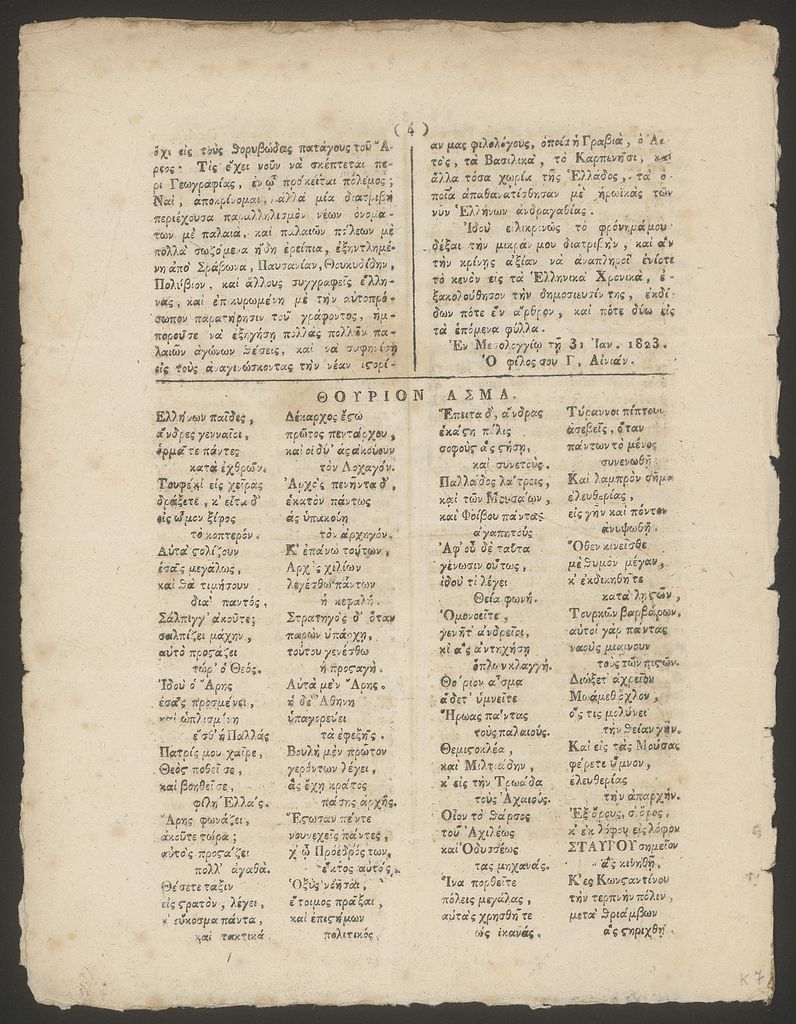 ( 4 )
ὄχι εἰς τοὺς θορυβώδεις πατάγους τοῦ Ἄ-
ρεος· Τίς ἔχει νοῦν νὰ σκέπτεται πε-
ρὶ Γεωγραφίας, ἐν ᾧ πρόκειται πόλεμος;
Ναί, ἀποκρίνομαι, ἀλλὰ μία διατριβὴ
περιέχουσα παραλληλισμὸν νέων ὀνομά-
των μὲ παλαιὰ, καὶ παλαιῶν πόλεων μὲ
πολλὰ σωζόμενα ἤδη ἐρείπια, ἐξηντλημέ-
νη ἀπὸ Στράβωνα, Παυσανίαν, Θουκυδίδην,
Πολύβιον, καὶ ἄλλους συγγραφεῖς ἕλλη-
νας, καὶ ἐπικυρωμένη μὲ τὴν αὐτοπρό-
σωπον παρατήρησιν τοῦ γράφοντος, ἠμ-
ποροῦσε νὰ ἐξηγήσῃ πολλὰς πολλῶν πα-
λαιῶν ἀγώνων θέσεις, καὶ νὰ
εἰς τοὺς ἀναγινώσκοντας τὴν νέαν ἱστορί-
αν μας φιλολόγους, ὁποῖα ἡ Γραβιὰ, ὁ Ἀε-
τὸς, τὰ Βασιλικὰ, τὸ Καρπενῆσι, καὶ
ἄλλα τόσα χωρία τῆς Ἑλλάδος, τὰ ὁ-
ποῖα ἀπαθανατίσθησαν μὲ ἡρωϊκὰς τῶν
νῦν Ἑλλήνων ἀνδραγαθίας.
Ἰδοὺ εἰλικρινῶς τὸ φρόνημά μου
δέξαι τὴν μικράν μου διατριβὴν, καὶ ἂν
τὴν κρίνῃς ἀξίαν νὰ ἀναπληροῖ ἐνίοτε
τὸ κενὸν εἰς τὰ Ἑλληνικὰ Χρονικὰ, ἐ-
ξακολούθησον τὴν δημοσίευσίν της, ἐκδί-
δων πότε ἓν ἄρθρον, καὶ πότε δύω εἰς
τὰ ἑπόμενα φύλλα.
Ἐν Μεσολογγίῳ τῇ 31 Ἰαν. 1823.
Ὁ φίλος σου Γ. Αἰνιάν.
ΘΟΥΡΙΟΝ ΑΣΜΑ.
Ἑλλήνων παῖδες,
ἄνδρες γενναῖοι,
ὁρμᾶτε πάντες
κατὰ ἐχθρῶν.
Τουφέκι εἰς χεῖρας
δράξετε, κ' εἶτα δ'
εἰς ὦμον ξίφος
τὸ κοπτερόν.
Αὐτὰ στολίζουν
ἐσᾶς μεγάλως,
καὶ θὰ τιμήσουν
διὰ παντός.
Σάλπιγγ' ἀκοῦτε;
σαλπίζει μάχην,
αὐτὸ προστάζει
τώρ' ὁ Θεός.
Ἰδοὺ ὁ Ἄρης
ἐσᾶς προσμένει,
καὶ ὡπλισμένη
εἶσθ' ἡ Παλλάς
Πατρίς μου χαῖρε,
Θεὸς ποθεῖ σε,
καὶ βοηθεῖ σε,
φίλη Ἑλλάς.
Ἄρης φωνάζει,
ἀκοῦτε τώρα;
αὐτὸς προστάζει
πολλ' ἀγαθά.
Θέσετε τάξιν
εἰς στρατὸν, λέγει,
κ' εὔκοσμα πάντα,
καὶ τακτικά.
Δέκαρχος ἔστω
πρῶτος πεντάρχου,
καὶ οἱ δύ' ἂς ἀκούουν
τὸν Λοχαγόν.
Ἀρχὸς πενῆντα δ',
ἑκατὸν πάντως
ἂς ὑπακούῃ
τὸν ἀρχηγόν.
Κ' ἐπάνω τούτων,
Ἀρχὸς χιλίων
λεγέσθω πάντων
ἡ κεφαλή.
Στρατηγὸς δ' ὅταν
παρὼν ὑπάρχῃ,
τούτου γενέσθω
ἡ προσταγή.
Αὐτὰ μὲν Ἄρης.
ἡ δὲ Ἀθήνη
ὑπαγορεύει
τὰ ἐφεξῆς.
Βουλὴ μὲν πρῶτον
γερόντων λέγει,
ἂς ἔχῃ κράτος
πάσης ἀρχῆς.
Ἔστωσαν πέντε
νουνεχεῖς πάντες,
χ' ᾧ Πρόεδρός των,
ἕκτος αὐτός.
Ὀξὺς νοῆσαι,
ἕτοιμος πρᾶξαι,
καὶ ἐπιστήμων
πολιτικός.
Ἔπειτα δ', ἄνδρας
ἑκάστη πόλις
σοφοὺς ἂς στήσῃ,
καὶ συνετούς.
Παλλάδος λάτρεις,
καὶ τῶν Μουσάων,
καὶ Φοίβου πάντας
ἀγαπητούς
Ἀφ' οὗ δὲ ταῦτα
γένωσιν οὕτως,
ἰδοὺ τί λέγει
Θεία φωνή.
Ὁμονοεῖτε,
γενῆτ' ἀνδρεῖοι,
κι' ἂς ἀντηχήσῃ
ὅπλων κλαγγή.
Θούριον ᾆσμα
ᾄδετ' ὑμνεῖτε
Ἥρωας πάντας
τοὺς παλαιούς.
Θεμιστοκλέα,
καὶ Μιλτιάδην,
κ' εἰς τὴν Τρωάδα
τοὺς Ἀχαιούς.
Οἷον τὸ θάρσος
τοῦ Ἀχιλέως
καὶ Ὀδυσσέως
τὰς μηχανάς.
Ἵνα πορθεῖτε
πόλεις μεγάλας,
αὐτὰς χρησθῆτε
ὡς ἱκανάς.
Τύραννοι πίπτουν
ἀσεβεῖς, ὅταν
πάντων τὸ μένος
συνενωθῇ
Καὶ λαμπρὸν σῆμα
ἐλευθερίας,
εἰς γῆν καὶ πόντον
ἀνυψωθῇ.
Ὅθεν κινεῖσθε
μὲ θυμὸν μέγαν,
κ' ἐκδικηθῆτε
κατὰ λῃστῶν,
Τουρκῶν βαρβάρων.
αὐτοὶ γὰρ πάντας
ναοὺς μιαίνουν
τοὺς τῶν πιστῶν.
Διώξετ' ἀχρεῖον
Μωάμεθ ὄχλον,
ὅς τις μολύνει
τὴν θείαν γῆν.
Καὶ εἰς τὰς Μούσας
φέρετε ὕμνον,
ἐλευθερίας
τὴν ἀπαρχήν.
Ἐξ ὄρους, εἰς ὄρος,
κ' ἐκ λόφου εἰς λόφον
ΣΤΑΥΡΟΥ σημεῖον
ἂς κινηθῇ,
Κ' ἐς Κωνσταντίνου
τὴν τερπνὴν πόλιν,
μετὰ θριάμβων
ἂς στηριχθῇ.
K 7